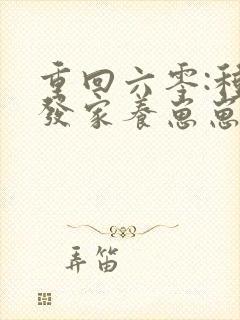 重回六零:種
發家養崽崽
弄笛